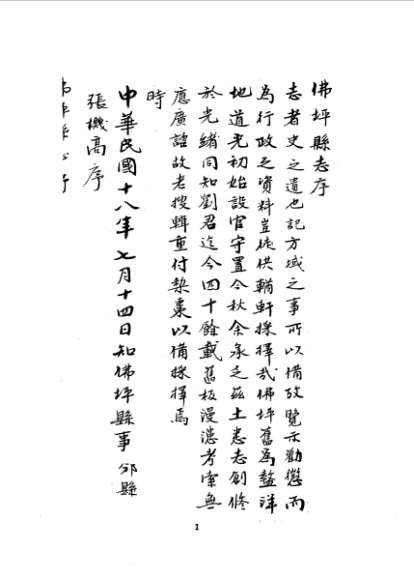 佛坪縣志序
志者史之遺也記方域之事所以備攷覽示勸懲而
為行政之資料豈徒供輶軒採擇哉佛坪舊為盩洋
地道光初始設官守置今秋余承乏茲土悉志創修
於光緒同知劉君迄今四十餘載舊板漫漶考索無
應廣諮故老搜輯重付棗以備採擇焉
時
中華民國十八年七月十四日知佛坪縣事 邠縣
張機高序
1